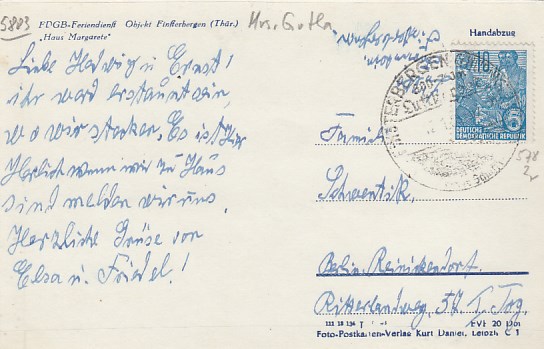 5803
FDGB-Feriendienst Objekt Finsterbergen (Thür.)
„Haus Margarete"
Mrs. Gotha
Handabzug
Liebe Hedwig u Ernst!
ihr werd erstaunt sein,
wo wir stecken. Es ist hier
Herlich wenn wir zu Haus
sind melden wir uns.
Herzliche Grüse von
Elsa u. Friedel!
FINSTERBERGEN
10
DEUTSCHE
DEMOKRATISCHE REPUBLIK
Familie
Schwentik.
Berlin Reinickendorf.
Ritterlandweg, 37. I. Trg.
578
EVP 20 Dpf
Foto-Postkarten-Verlag Kurt Daniel, Leipzig C 1